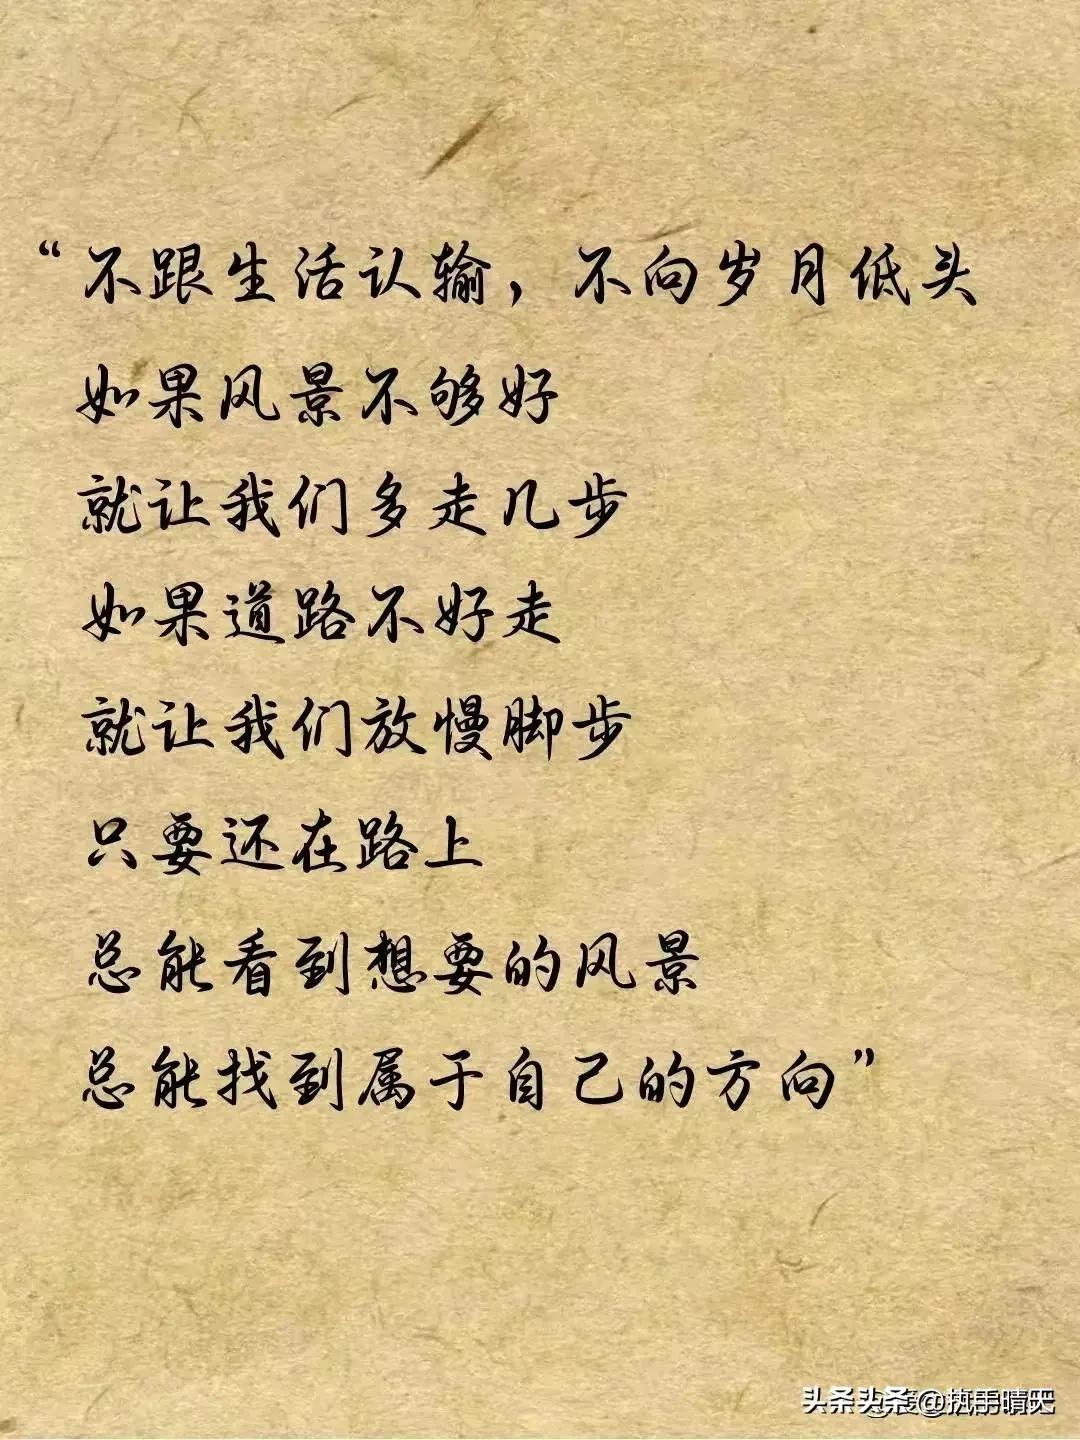 “不跟生活认输，不向岁月低头
如果风景不够好
就让我们多走几步
如果道路不好走
就让我们放慢脚步
只要还在路上
总能看到想要的风景
总能找到属于自己的方向”
头条 @执手晴天